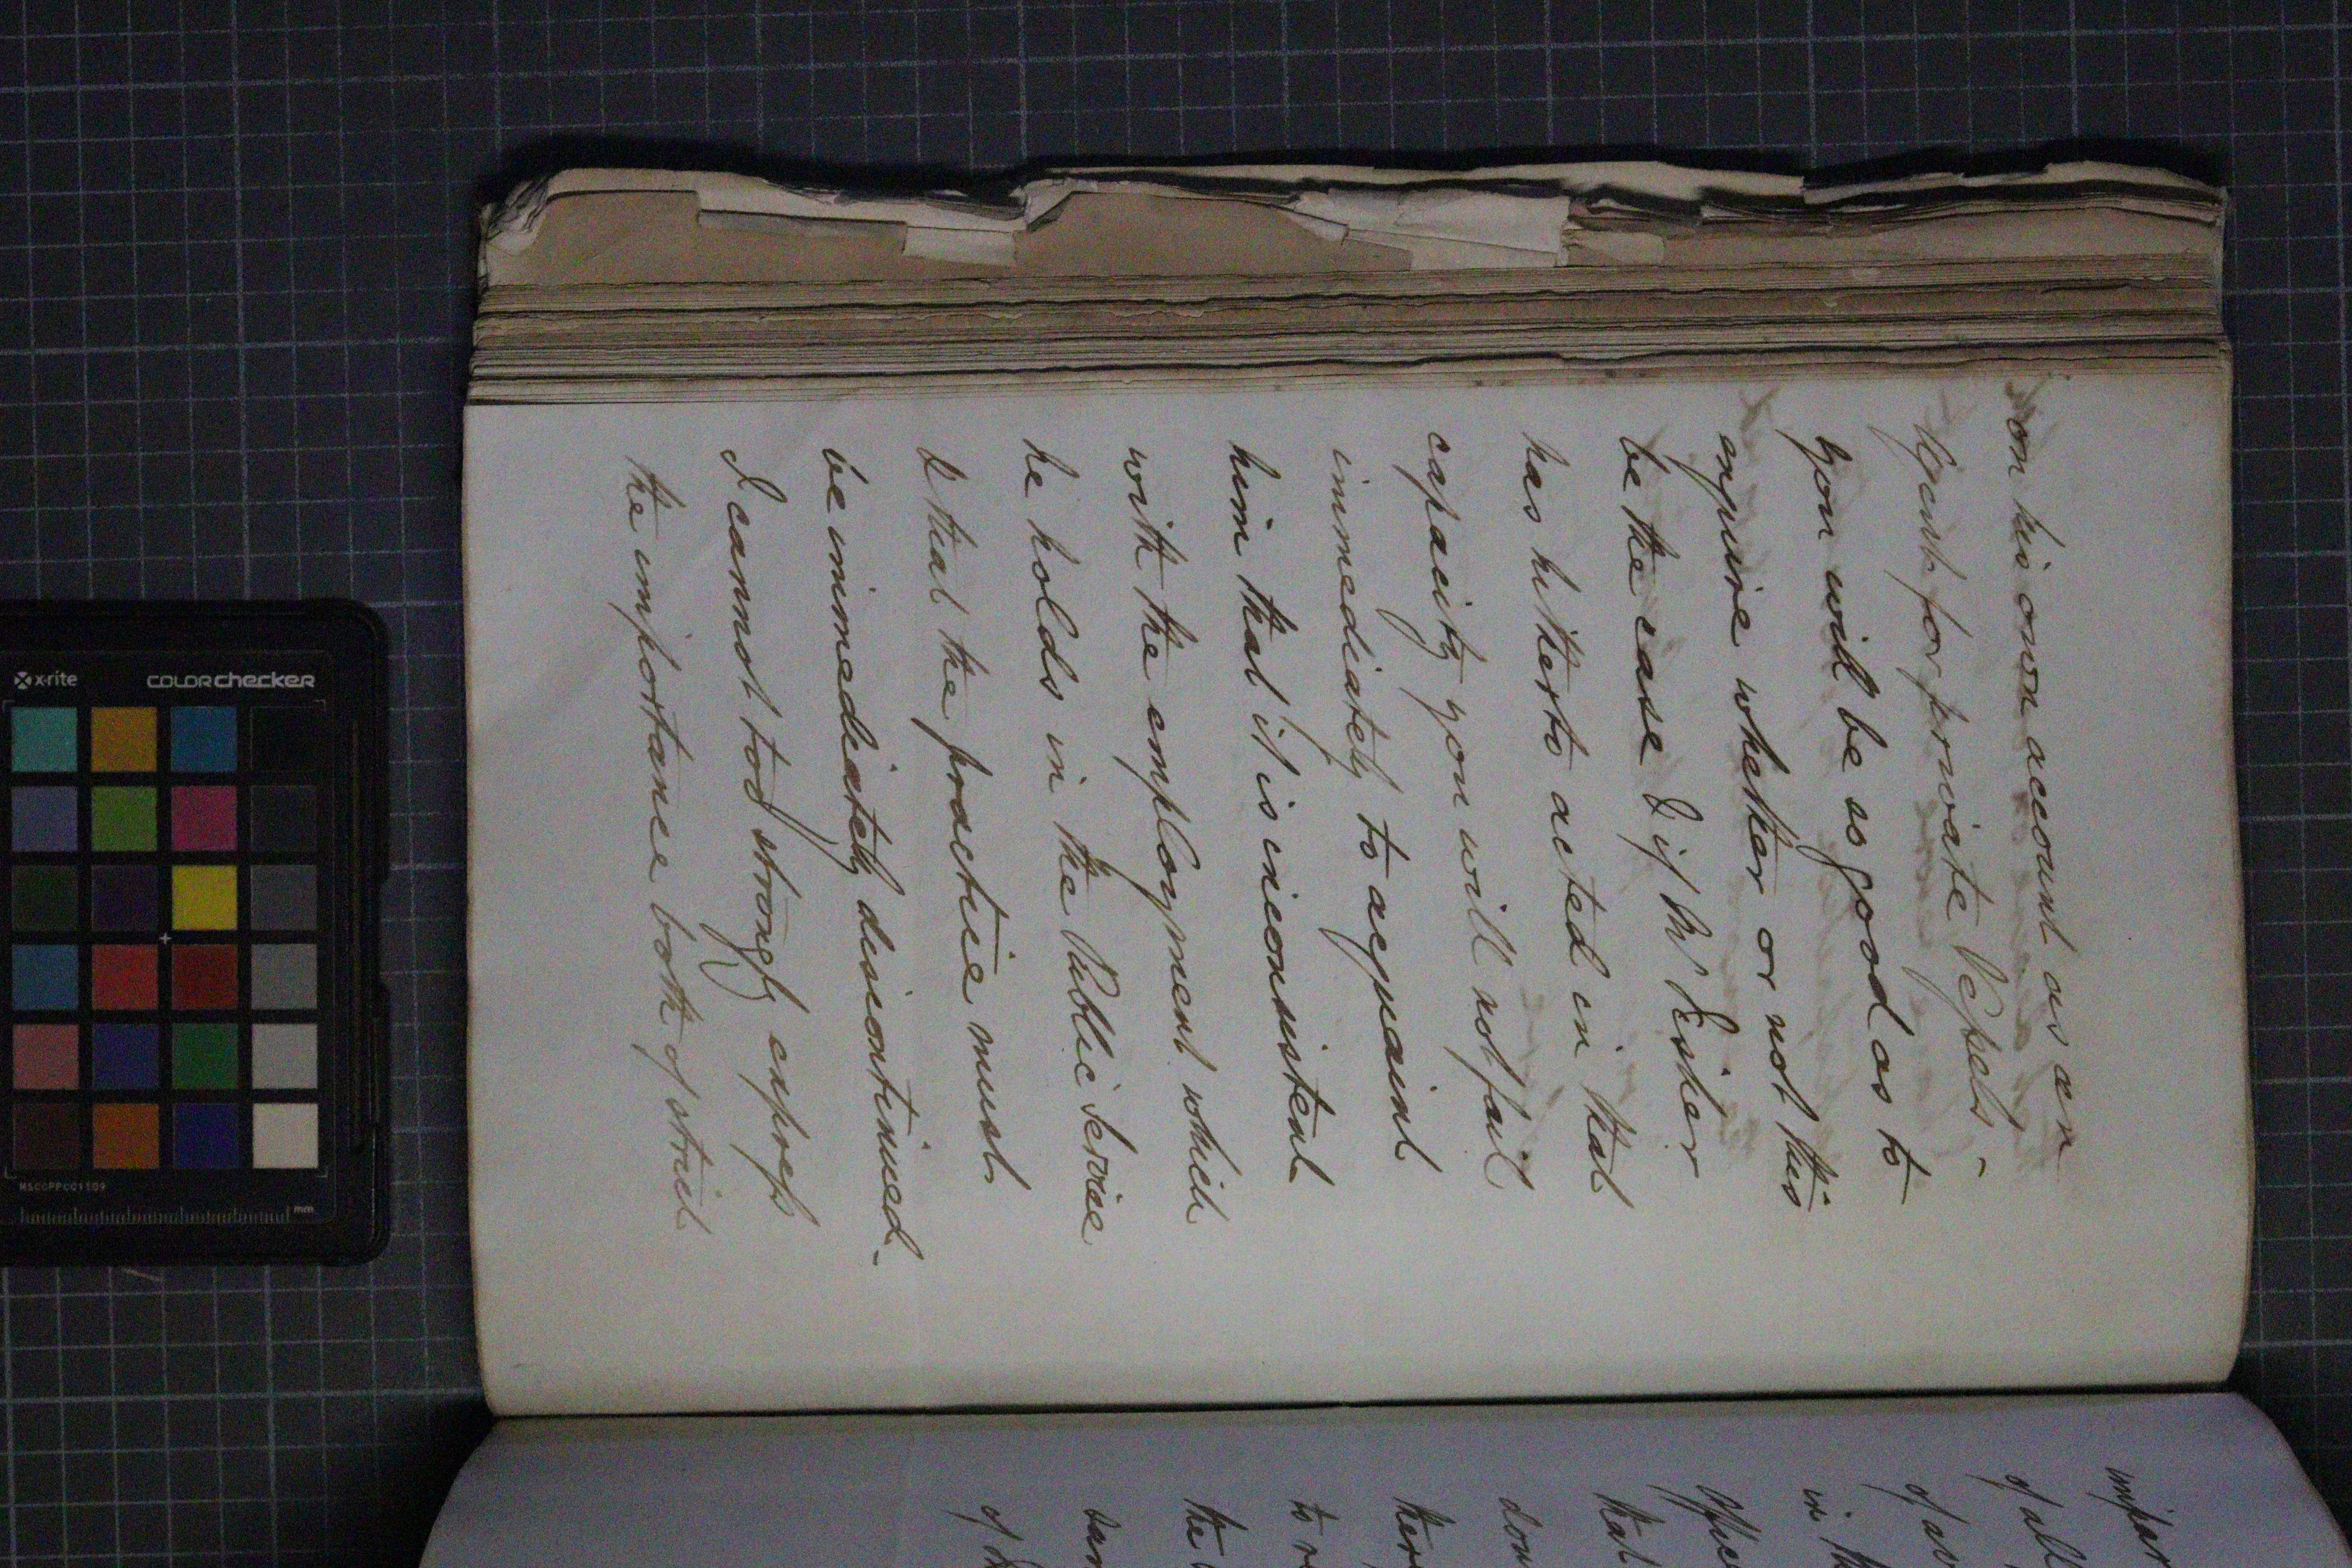 on his own account as an
Agent for private Vessels -
you will be so good as to
enquire whether or not this
be the case & if Mr Fisher
has hitherto acted in that
capacity you will not fail
immediately to acquaint
him that it is inconsistent
with the employment which
he holds in the Public Service
& that the practice must
be immediately discontinued -
I cannot too strongly express
the importance both of strict
of all
in th
that
don
ther
to r
the
x-rite
COLORchecker
MSCCPPCC1109
mm